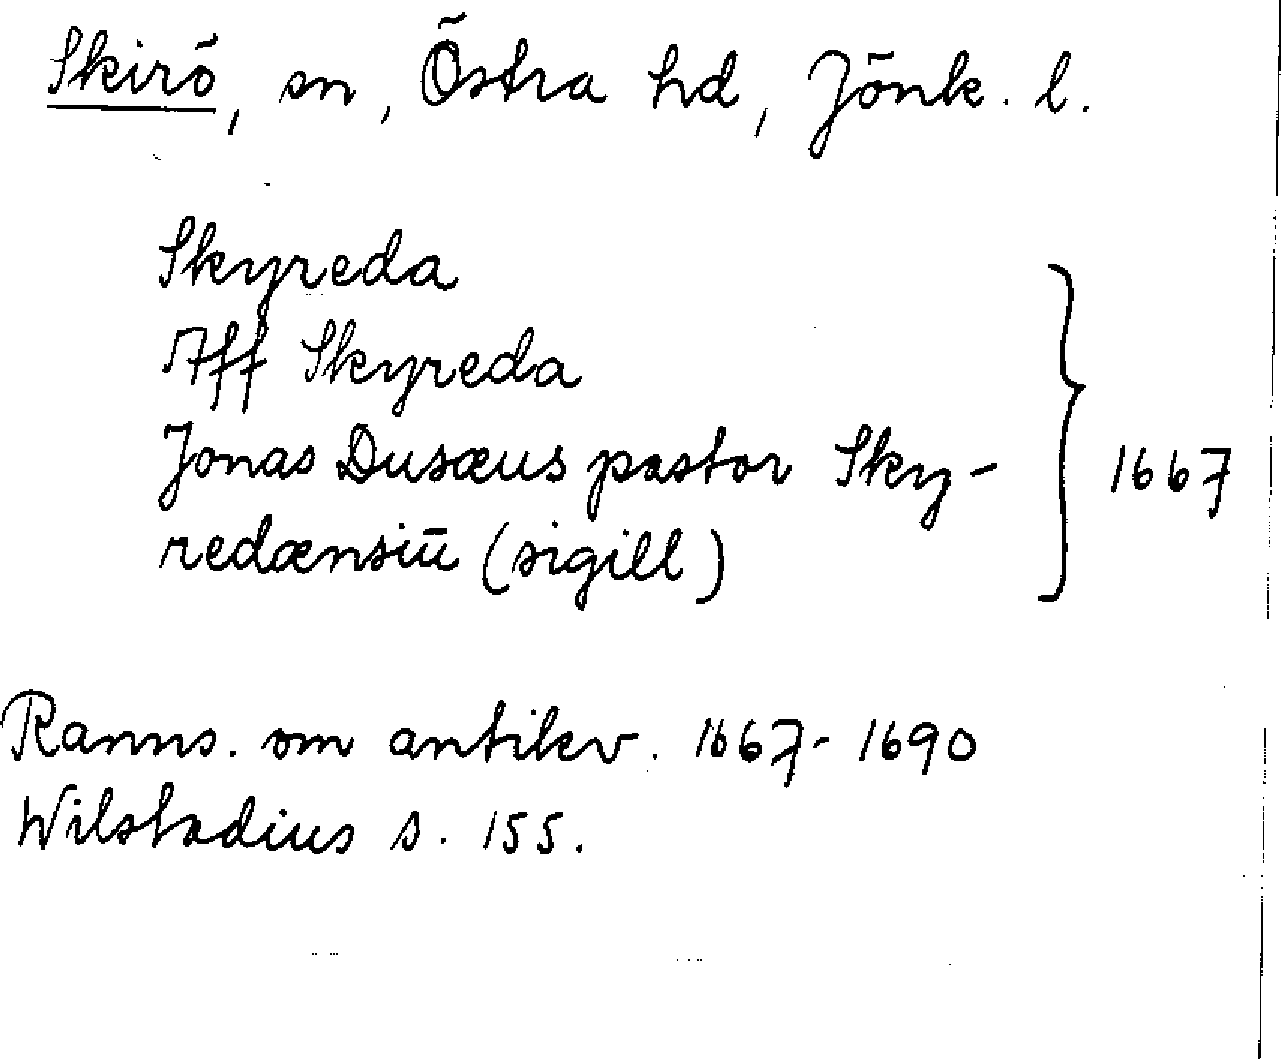 Skirö, sn, Östra hd, Jönk. l.
Skyreda
Aff Skyreda
Jonas Dusæus pastor Sky-
redænsiū (sigill) } 1667
Ranns. om antikv. 1667-1690
Wilstadius s. 155.